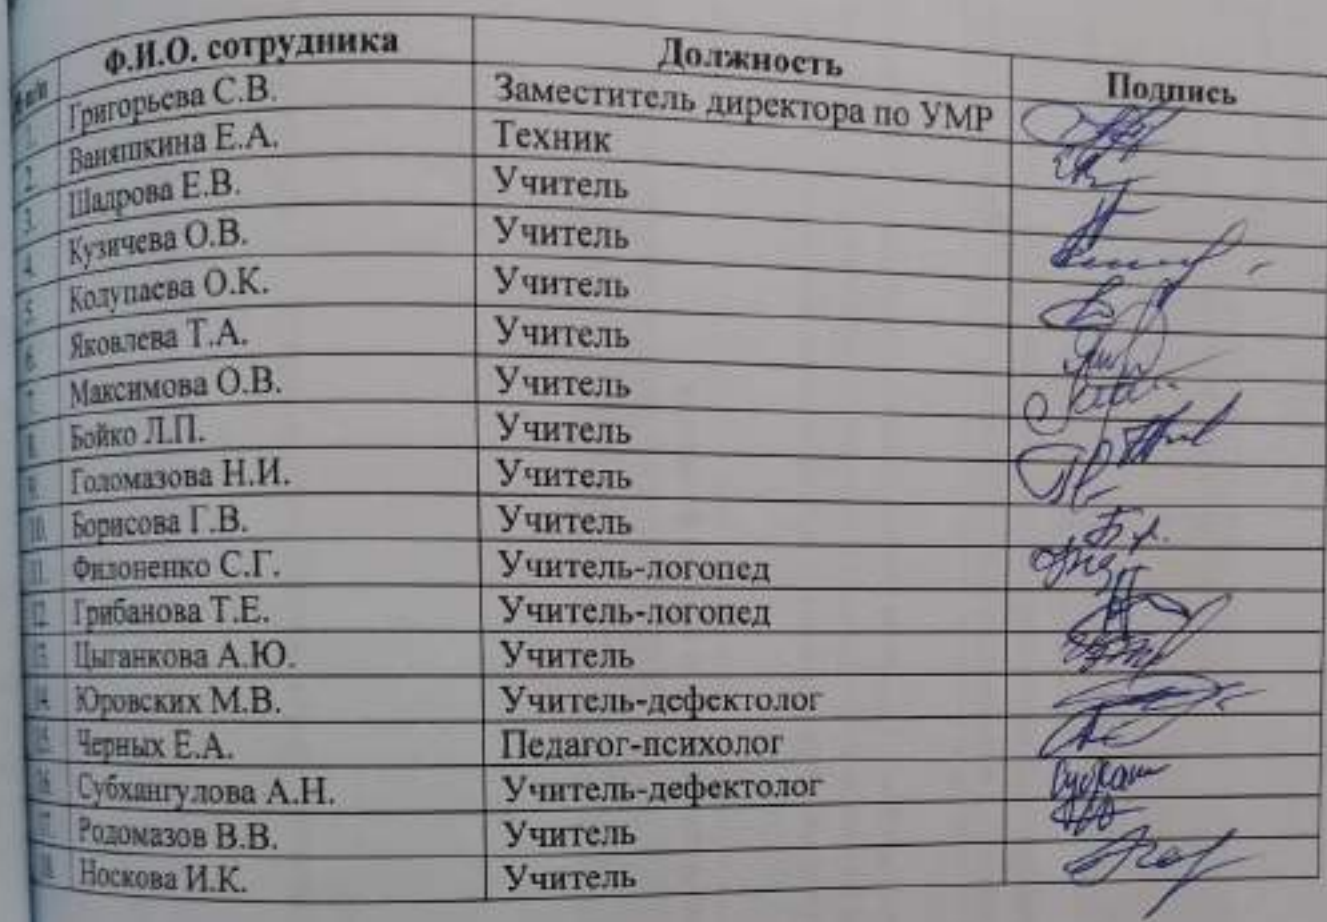 № п/п Ф.И.О. сотрудника Должность Подпись
1. Григорьева С.В. Заместитель директора по УМР
2. Ваняшкина Е.А. Техник
3. Шадрова Е.В. Учитель
4. Кузичева О.В. Учитель
5. Колупаева О.К. Учитель
6. Яковлева Т.А. Учитель
7. Максимова О.В. Учитель
8. Бойко Л.П. Учитель
9. Голомазова Н.И. Учитель
10. Борисова Г.В. Учитель
11. Филоненко С.Г. Учитель-логопед
12. Грибанова Т.Е. Учитель-логопед
13. Цыганкова А.Ю. Учитель
14. Юровских М.В. Учитель-дефектолог
15. Черных Е.А. Педагог-психолог
16. Субхангулова А.Н. Учитель-дефектолог
17. Родомазов В.В. Учитель
18. Носкова И.К. Учитель